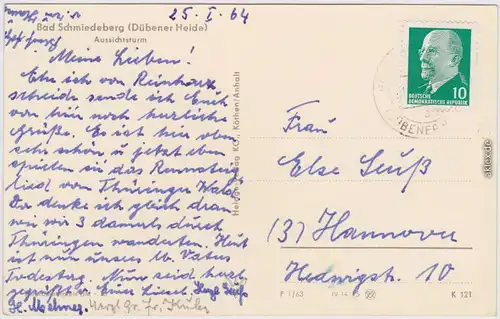 25. I. 64
Bad Schmiedeberg (Dübener Heide)
Aussichtsturm
Meine Lieben!
Ehe ich von Reinharz
scheide sende ich Euch
von hier noch herzliche
Grüße. Es ist hier sehr
sehr schön u jetzt eben
spielen in das Rennsteig
lied vom Thüringer Wald.
Da denke ich gleich dran
wie wir 3 damals durch
Thüringen wanderten. Heut
ist nun unsres lb. Vaters
Todestag. Nun seid herzl
gegrüßt. Eure Liesel. Herzl Grüße
H. Herzl. Gr. Fr.
KG., Köthen/Anhalt
P 1/63
K 121
10
DEUTSCHE
DEMOKRATISCHE REPUBLIK
Frau
Else Seuß
(3) Hannover
Hedwigstr. 10